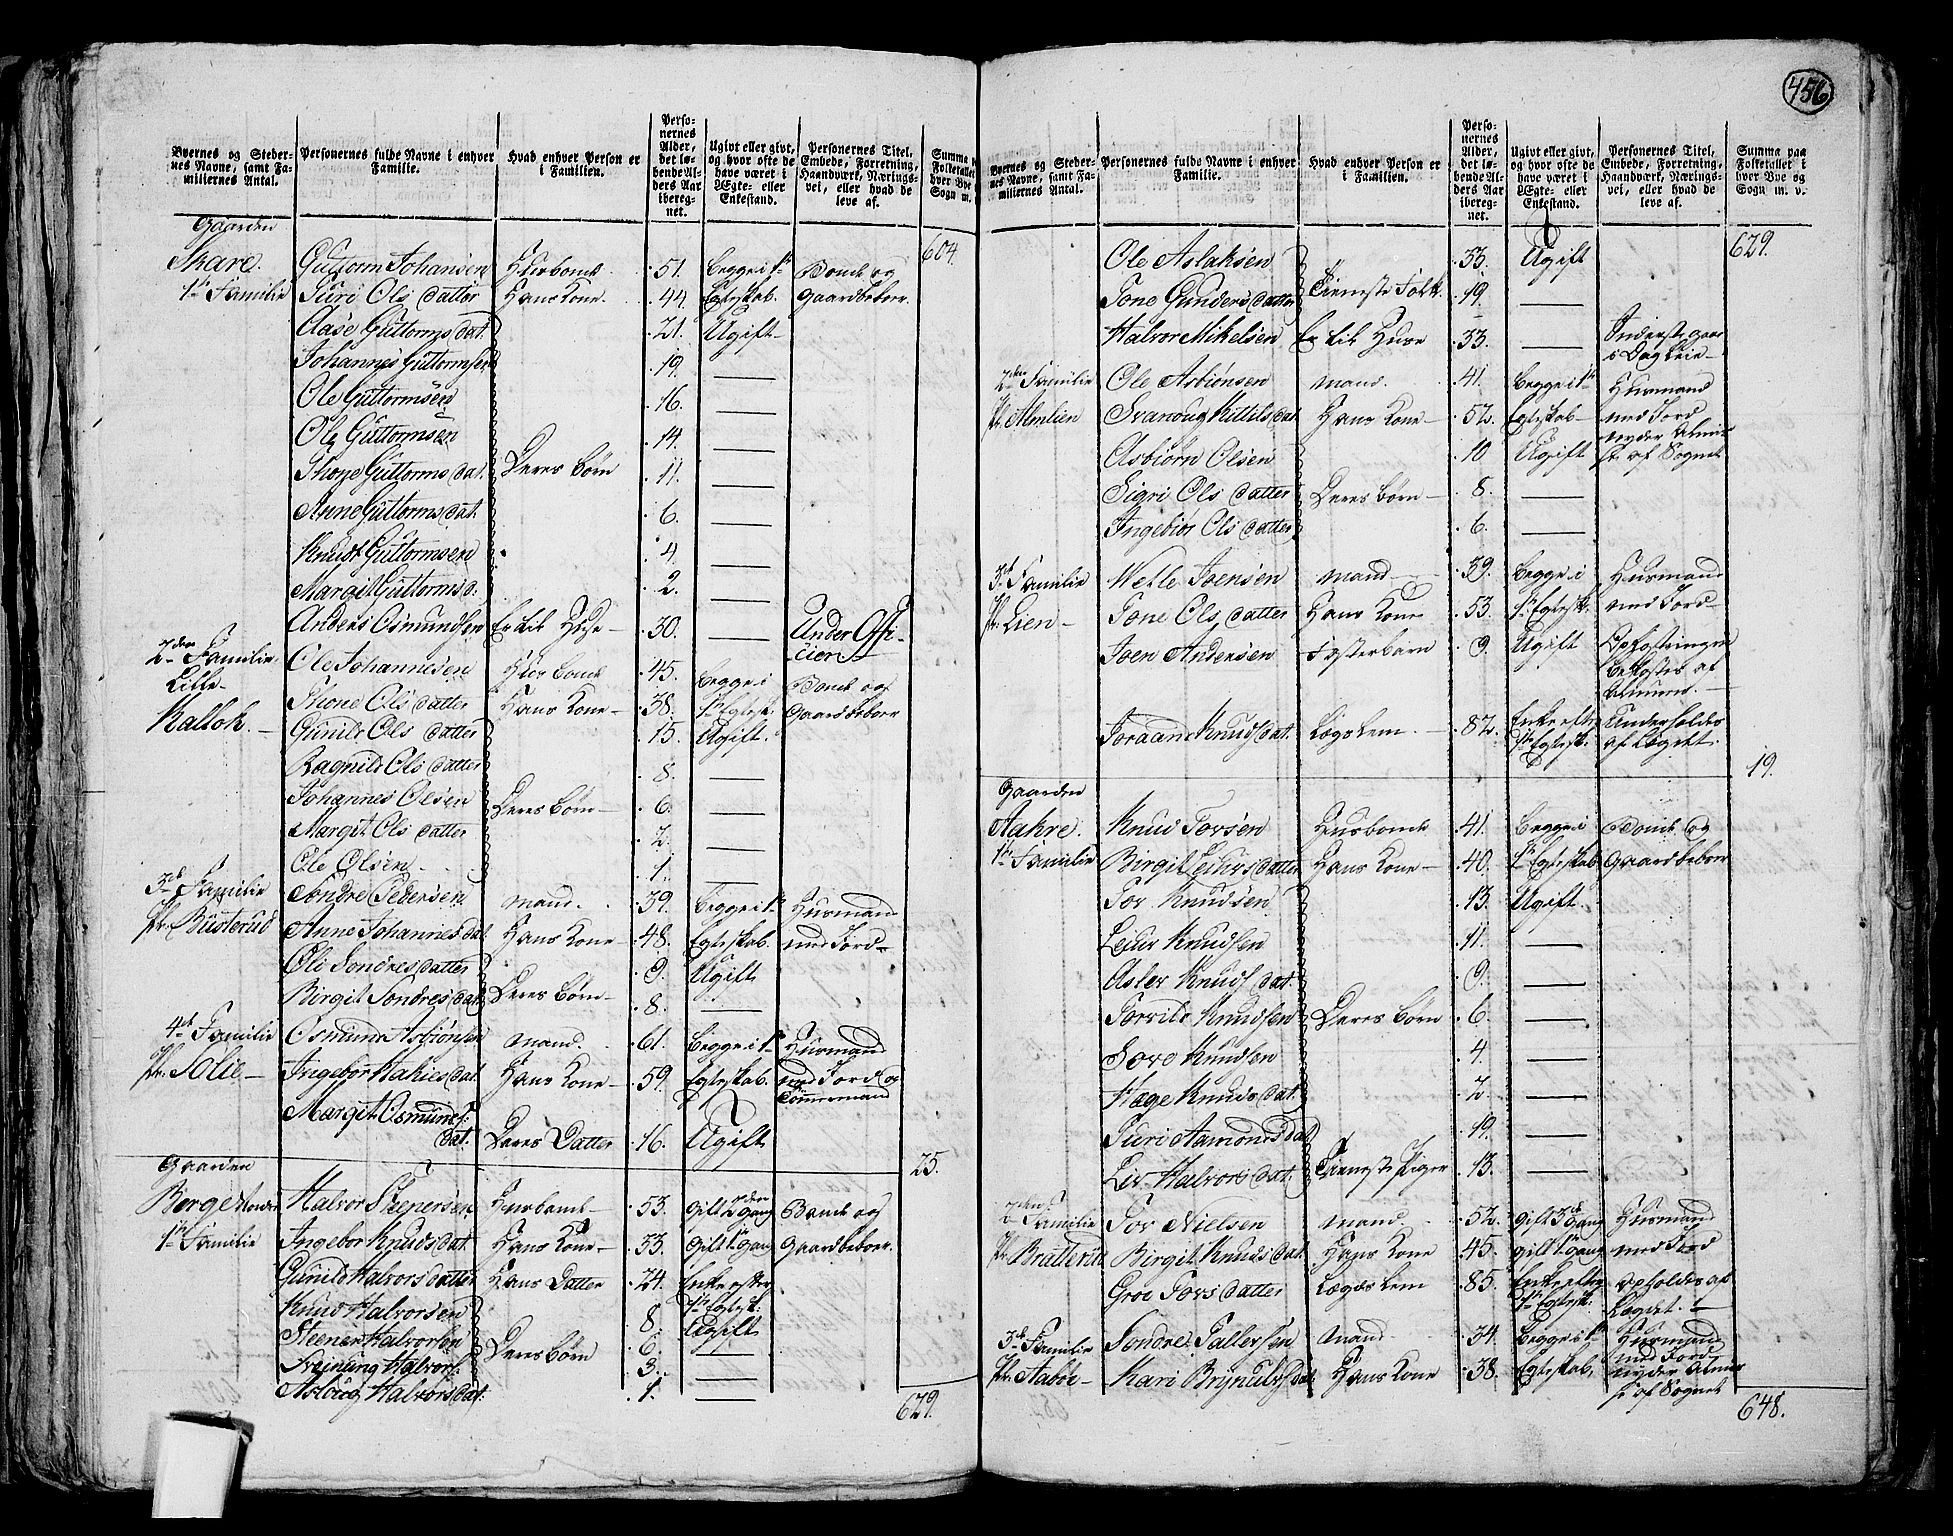 456
Byernes og Stedernes Navne, samt Familiernes Antal.
Personernes fulde Navne i enhver Familie.
Hvad enhver Person er i Familien.
Personernes Alder, det løbende Alders Aar iberegnet.
Ugivt eller givt, og hvor ofte de have været i Ægte- eller Enkestand.
Personernes Titel, Embede, Forretning, Haandværk, Næringsvei, eller hvad de leve af.
Gaarden 604.
Skare. Guttorm Johansen Husbonde 51. Begge i 1te Bonde og
1te Familie Turi Ols datter Hans Kone 44 Egteskab. Gaardbeboer.
Aase Guttorms dat. 21. Ugift
Johannes Guttormsen 19. —
Ole Guttormsen 16. —
Ole Guttormsen 14. —
Guttorms dat. Deres Børn 11. —
Anne Guttorms dat. 6. —
Knudt Guttormsen 4 —
Margit Guttorms d. 2. —
Anders Osmundsen Er til Huse 30. — Under Offi-
cier
2den Familie Ole Johannesen Husbonde 45. Begge i Bonde og
Lille Thone Ols datter Hans Kone 38. 1te Egtesk. Gaardbeboer
Kallok. Gunild Ols datter 15. Ugift.
Ragnild Ols datter 8. —
Johannes Olsen Deres Børn 6. —
Margit Ols datter 2. —
Ole Olsen 1. —
3de Familie Sondre Pedersen Mand. 39. Begge i 1te Husmand
Pl. Busterud Anne Johannes dat. Hans Kone 48. Egteskab. med Jord
Oli Sondres datter 9. Ugift
Birgit Sondres dat. Deres Børn 8. —
4de Familie Osmund Asbiønsen Mand. 61. Begge i 1te Husmand
Pl. Solie Ingebor dat. Hans Kone 59. Egteskab. med Jord og
Tømmermand
Margit Osmunds
dat. Deres Datter 16. Ugift
Gaarden 25.
Berge Halvor Steenersen Husbonde 53. Gift 2den Gang Bonde og
1te Familie Ingebor Knuds dat. Hans Kone 33. Gift 1te Gang Gaardbeboer.
Gunild Halvors datter Hans Datter 24. Enke efter
1te Egtesk:
Knud Halvorsen 8. Ugift
Steener Halvorsen Deres Børn 6. —
Halvors. 3. —
Aslaug Halvors dat. 1. —
629.
Byernes og Stedernes Navne, samt Familiernes Antal.
Personernes fulde Navne i enhver Familie.
Hvad enhver Person er i Familien.
Personernes Alder, det løbende Alders Aar iberegnet.
Ugivt eller givt, og hvor ofte de have været i Ægte- eller Enkestand.
Personernes Titel, Embede, Forretning, Haandværk, Næringsvei, eller hvad de leve af.
Summa paa Folketallet i hver Bye og Sogn m. v.
Ole Aslaksen 33. Ugift 629.
Tone Gunders datter Tieneste Folk 19. —
Halvor Mikelsen Er til Huse 33. — Inderst, gaar
i Dag Leie
2den Familie Ole Asbiønsen Mand. 41. Begge i 1te Husmand
Pl. Almlien Svanoug Kittils dat. Hans Kone 52. Egteskab med Jord
Asbiørn Olsen 10 Ugift nyder Almis
se af Sognet
Sigri Ols datter Deres Børn 8. —
Ingebiør Ols datter 6. —
3de Familie Wetle Joensen Mand 39. Begge i Husmand
Pl. Lien Tone Ols datter Hans Kone 53. 1te Egtesk. med Jord
Joen Andersen Fosterbarn 9. Ugift Opfostringen
bekostes af
Almuen.
Joraand Knuds dat. Lægs Lem. 82. Enke efter Underholdes
1te Egtesk: af Lægdet.
Gaarden 19.
Aahre. Knud Torsen Husbonde 41. Begge i Bonde og
1te Familie Birgit datter Hans Kone 40. 1te Egteskab Gaardbeboer
Tor Knudsen 13. Ugift.
Knudsen 11. —
Knuds dat. 9. —
Torvild Knudsen Deres Børn 6. —
Knudsen 4. —
Hæge Knuds dat. 2. —
Turi Aamonds dat 19. —
Liv Halvors dat. Tieneste Piger 13. —
2den Familie Tor Nielsen Mand 52. Gift 3de Gang Husmand
Pl. Bratterud Birgit Knuds dat. Hans Kone 45. Gift 1te Gang med Jord
Groe Tors datter Lægds Lem 85. Enke efter Opholdes af
1te Egtesk: Lægdet.
3de Familie Sondre Tallefsen Mand 34. Begge i 1te Husmand
Pl. Kari dat. Hans Kone 38. Egteskab. med Jord
nyder Almis
se af Sognet
648.